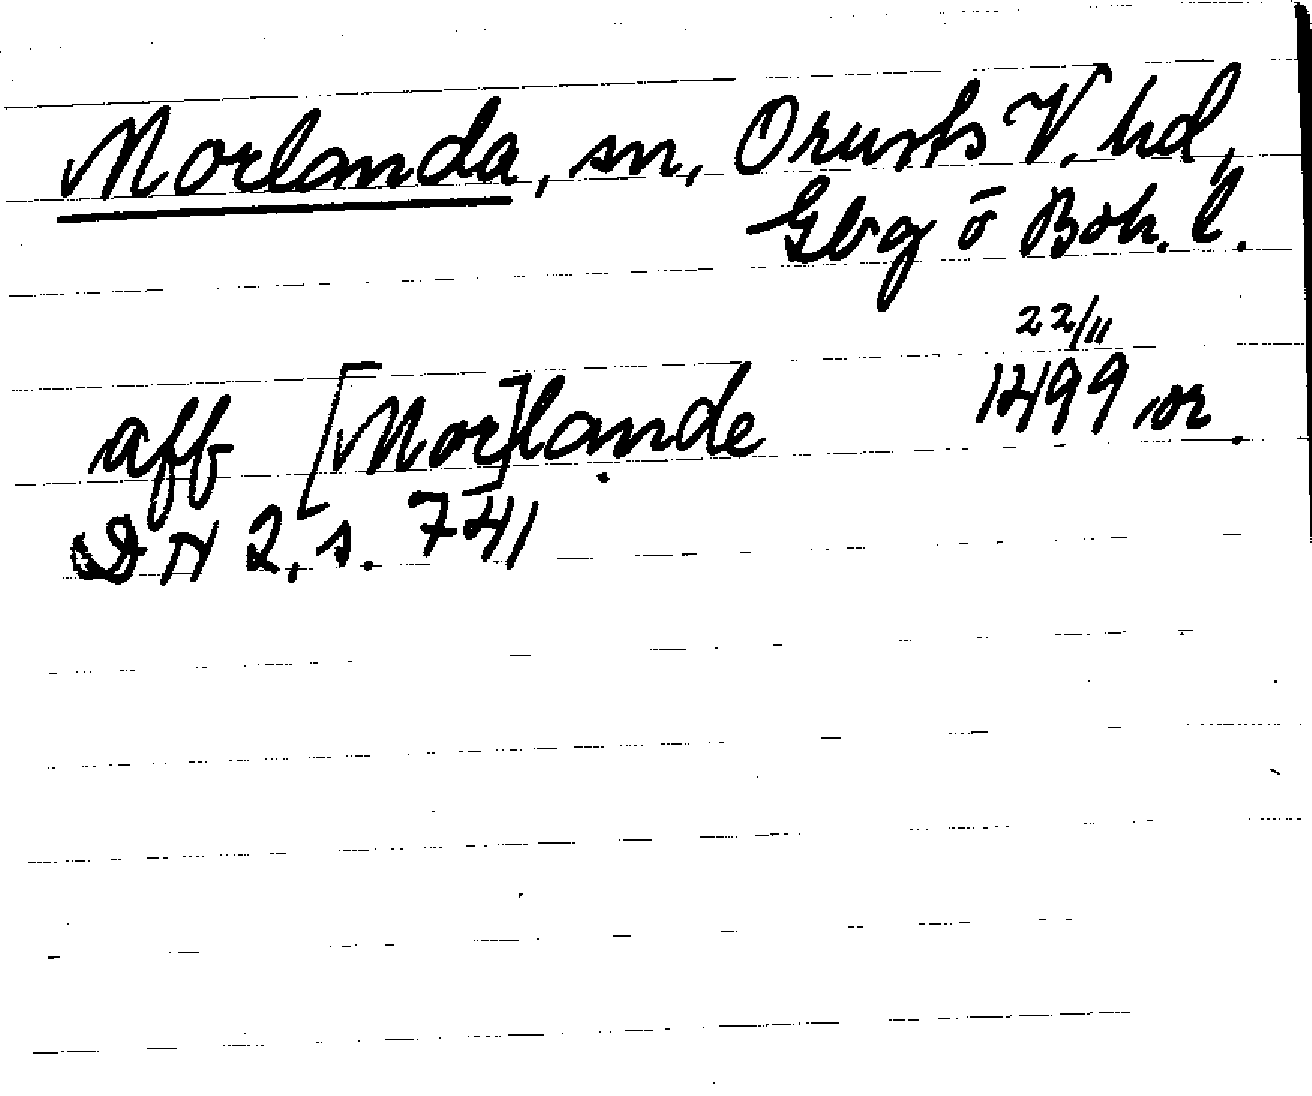 Morlanda, sn, Orusts V. hd,
Gbg ō Boh. l.
22/11
aff [Mor]lande 1499 or.
DN 2, s. 741